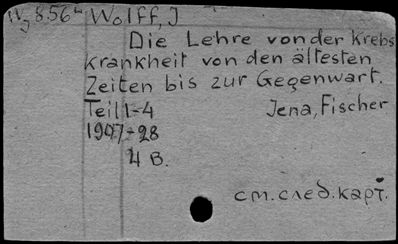 IV 8.56 Wolff, J
Die Lehre von der Krebs
krankheit von den ältesten
Zeiten bis zur Gegenwart.
Teil 1-4 Jena, Fischer
1907-28
4 B.
см. след. карт.